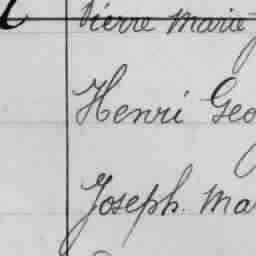 Pierre Marie
Henri Geo
Joseph Ma